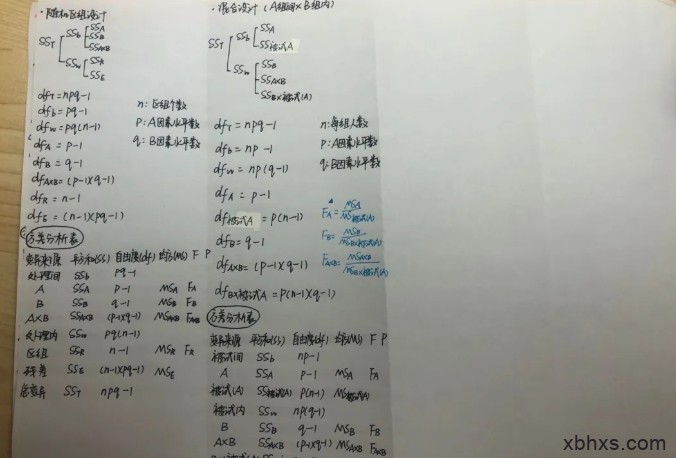 ·随机区组设计
SS_T
SS_b
SS_A
SS_B
SS_A×B
SS_w
SS_R
SS_E
df_T = npq-1
df_b = pq-1
df_w = pq(n-1)
df_A = p-1
df_B = q-1
df_A×B = (p-1)(q-1)
df_R = n-1
df_E = (n-1)(pq-1)
n: 区组个数
p: A因素水平数
q: B因素水平数
方差分析表
变异来源 平方和(SS) 自由度(df) 均方(MS) F P
处理间 SS_b pq-1
A SS_A p-1 MS_A F_A
B SS_B q-1 MS_B F_B
A×B SS_A×B (p-1)(q-1) MS_A×B F_A×B
处理内 SS_w pq(n-1)
区组 SS_R n-1 MS_R F_R
残差 SS_E (n-1)(pq-1) MS_E
总变异 SS_T npq-1
·混合设计 (A组间×B组内)
SS_T
SS_b
SS_A
SS_被试A
SS_w
SS_B
SS_A×B
SS_B×被试(A)
df_T = npq-1
df_b = np-1
df_w = np(q-1)
df_A = p-1
df_被试A = p(n-1)
df_B = q-1
df_A×B = (p-1)(q-1)
df_B×被试A = p(n-1)(q-1)
n: 每组人数
p: A因素水平数
q: B因素水平数
F_A = MS_A / MS_被试(A)
F_B = MS_B / MS_B×被试(A)
F_A×B = MS_A×B / MS_B×被试(A)
方差分析表
变异来源 平方和(SS) 自由度(df) 均方(MS) F P
被试间 SS_b np-1
A SS_A p-1 MS_A F_A
被试(A) SS_被试(A) p(n-1) MS_被试(A)
被试内 SS_w np(q-1)
B SS_B q-1 MS_B F_B
A×B SS_A×B (p-1)(q-1) MS_A×B F_A×B
xbhxs.com